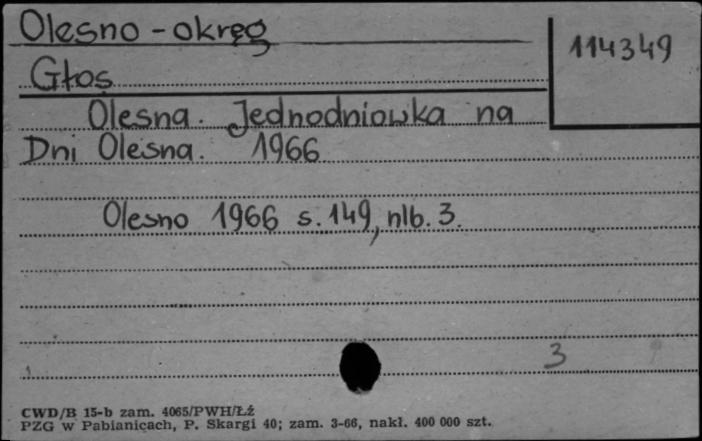 Olesno - okręg
114349
Głos
Olesna. Jednodniowka na
Dni Olesna. 1966
Olesno 1966 s. 149, nlb. 3.
3
CWD/B 15-b zam. 4065/PWH/Łż
PZG w Pabianicach, P. Skargi 40; zam. 3-66, nakł. 400 000 szt.